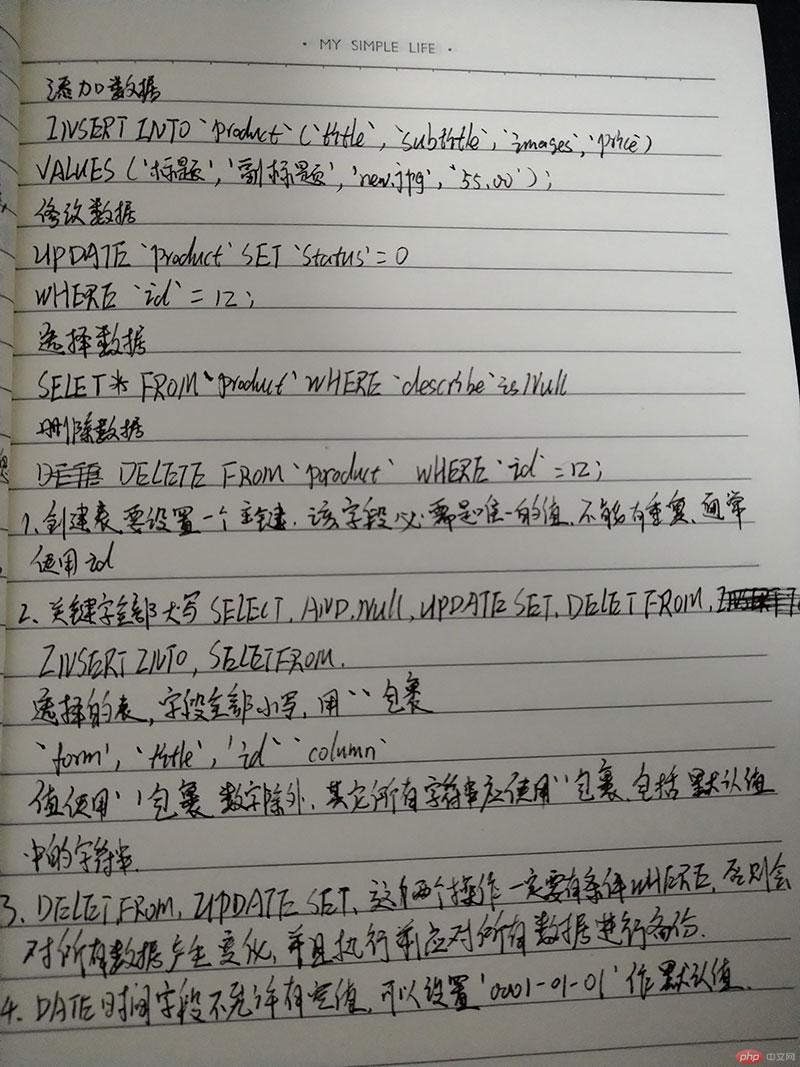 · MY SIMPLE LIFE ·
添加数据
INSERT INTO `product` (`title`, `subtitle`, `images`, `price`)
VALUES ('标题', '副标题', 'new.jpg', '55.00');
修改数据
UPDATE `product` SET `status` = 0
WHERE `id` = 12;
选择数据
SELET * FROM `product` WHERE `describe` is Null
删除数据
DELETE FROM `product` WHERE `id` = 12;
1、创建表要设置一个主键. 该字段必需是唯一的值、不能有重复、通常
使用id
2、关键字全部大写 SELECT, AND, Null, UPDATE SET, DELET FROM,
INSERT INTO, SELET FROM.
选择的表, 字段全部小写, 用 `` 包裹
`form`, `title`, `id` `column`
值使用 '' 包裹 数字除外, 其它所有字符串应使用 '' 包裹、包括默认值
中的字符串.
3、DELET FROM, UPDATE SET, 这两个操作一定要有条件WHERE, 否则会
对所有数据产生变化, 并且执行前应对所有数据进行备份.
4、DATE时间字段不允许有空值, 可以设置 '0001-01-01' 作默认值.
php 中文网